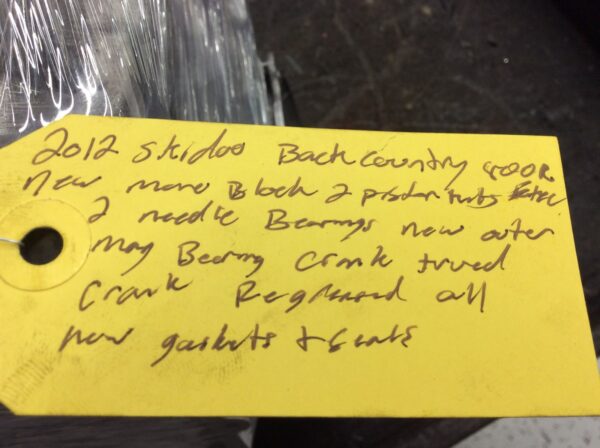 2012 skidoo Back country 800R
New mono Block 2 piston kits
2 needle Bearings new outer
mag Bearing Crank trued
Crank Regreased all
new gaskets + seals